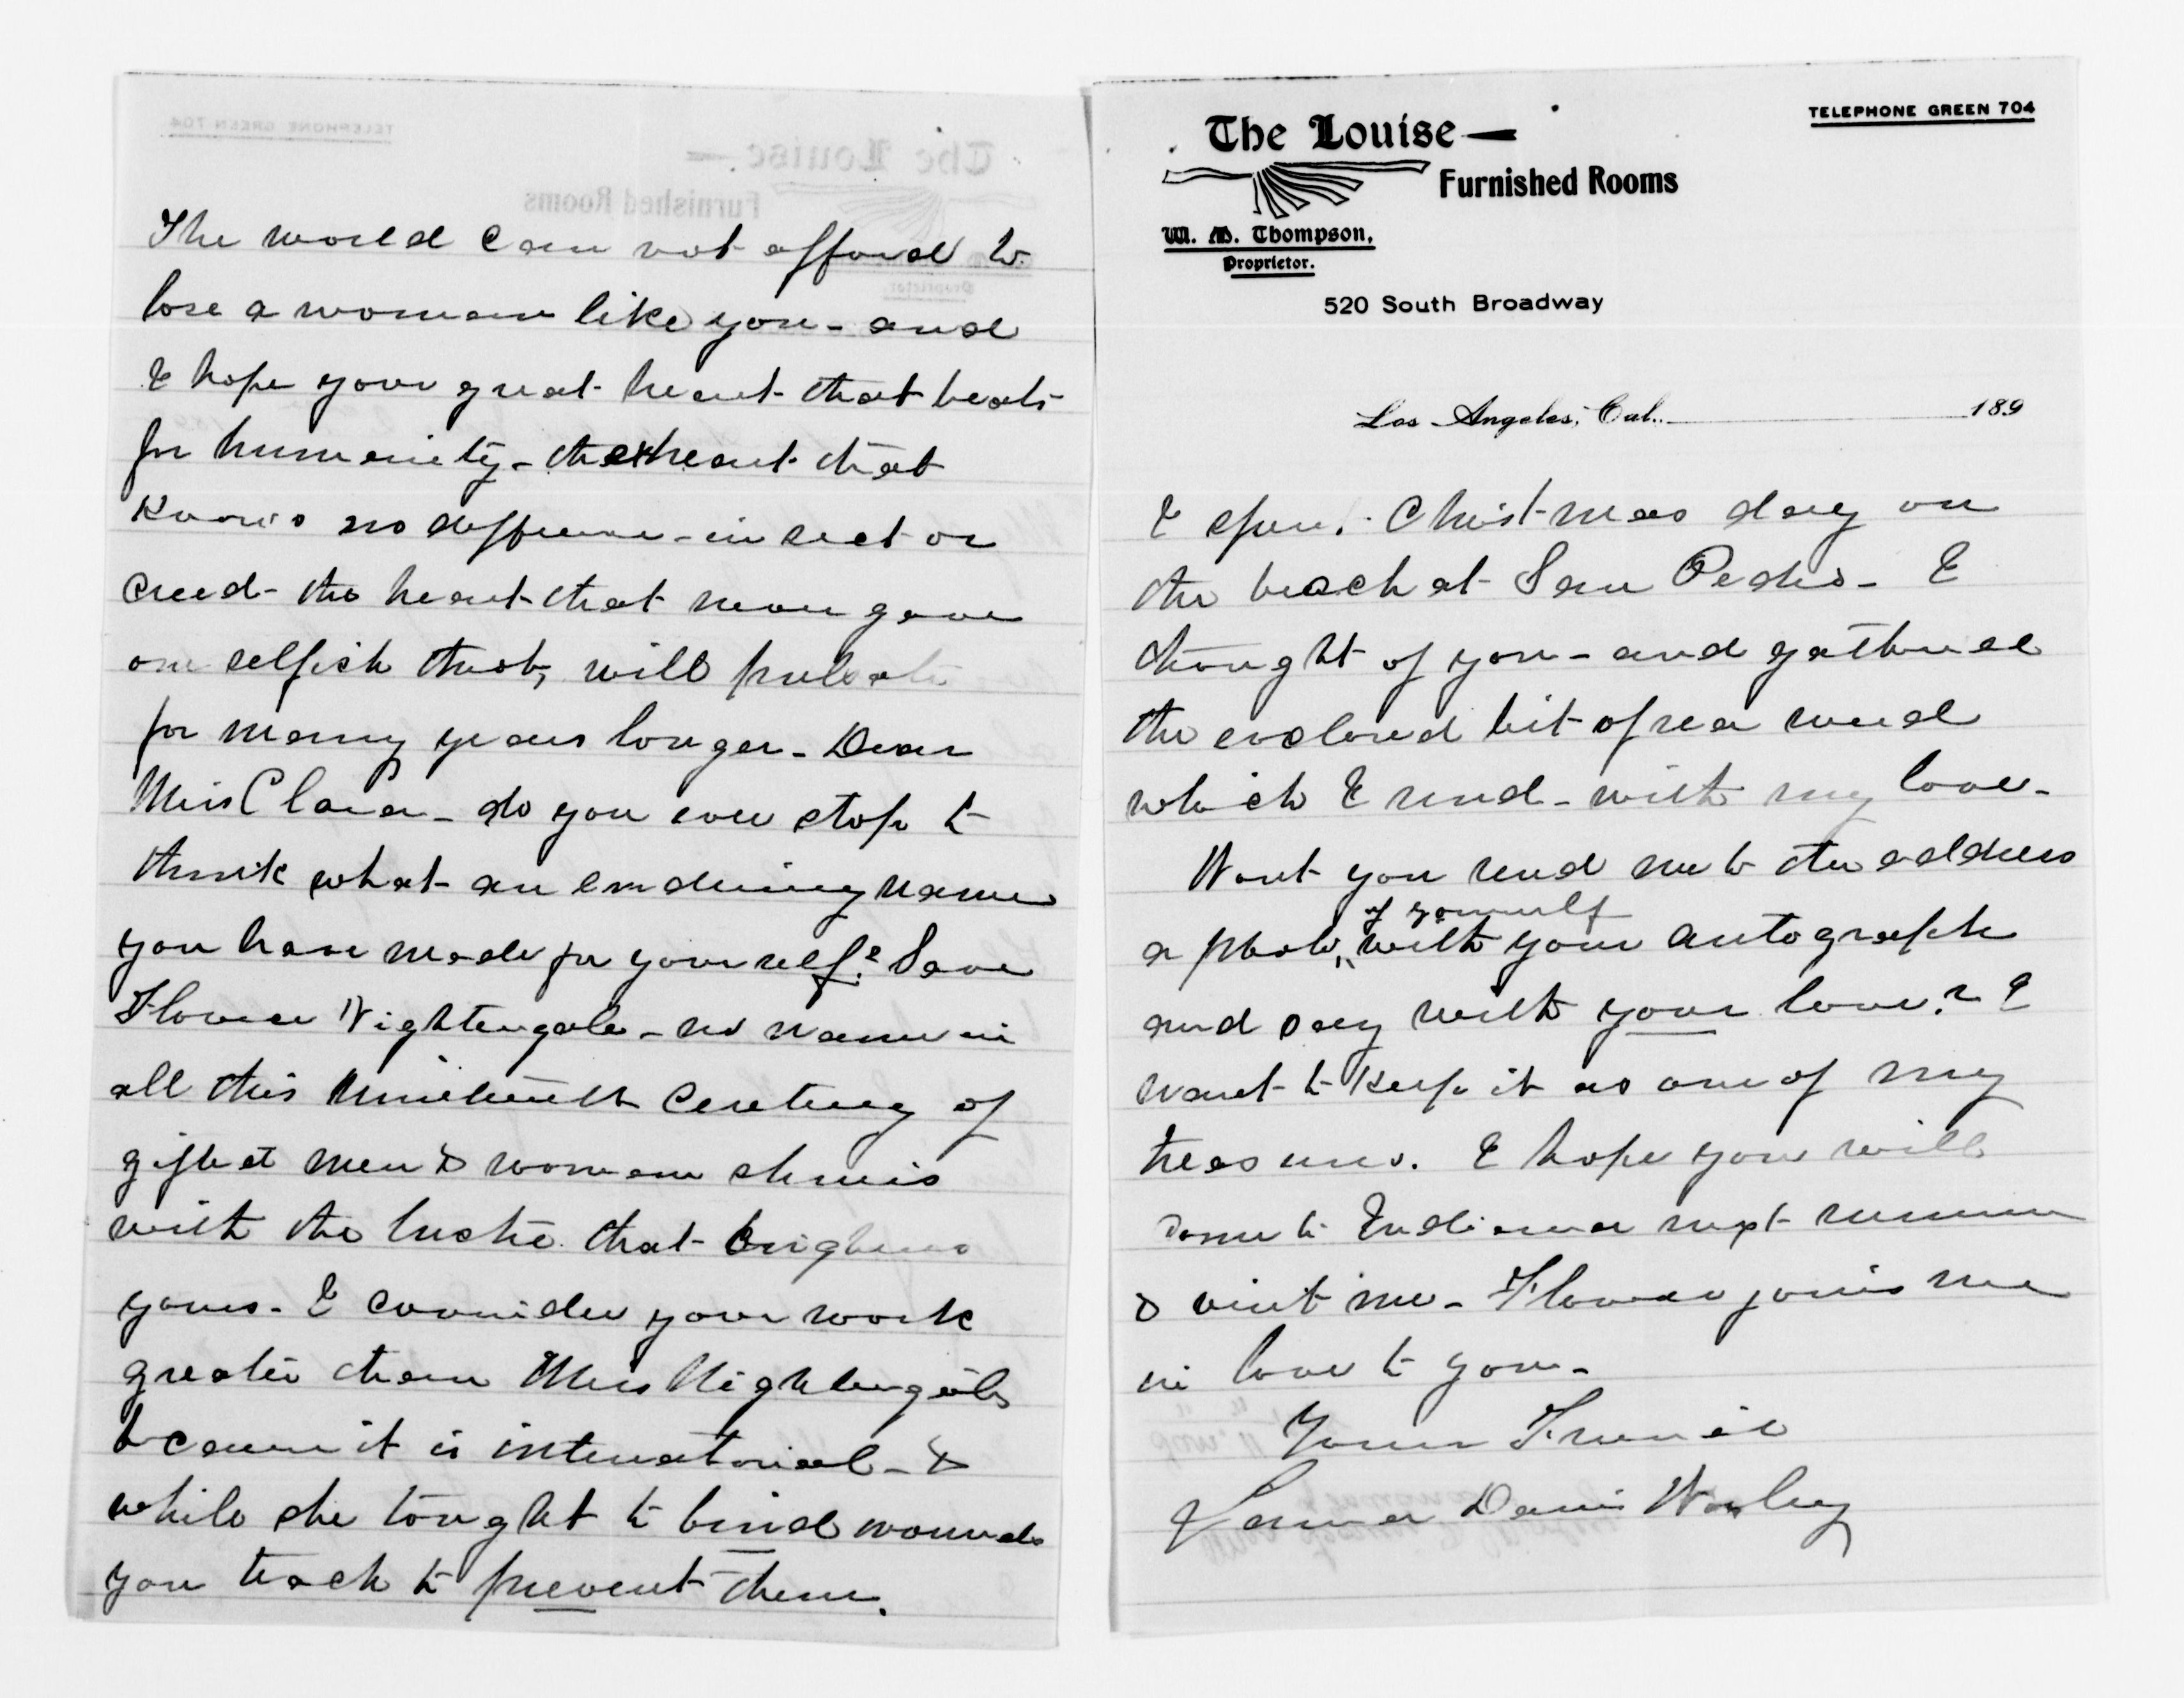 The world can not afford to
lose a woman like you - and
I hope your great heart that beats
for humanity - the heart that
knows no difference - in sect or
creed - the heart that never gave
one selfish throb, will pulsate
for many years longer - Dear
Miss Clara - do you ever stop to
think what an enduring name
you have made for yourself? Save
Florence Nightengale - no name in
all this nineteenth century of
gifted men & women shines
with the lustre that brightens
yours - I consider your work
greater than Miss Nightengales
because it is international - &
while she taught to bind wounds
you teach to prevent them.
The Louise —
Furnished Rooms
TELEPHONE GREEN 704
W. M. Thompson,
Proprietor.
520 South Broadway
Los Angeles, Cal. 189
I spent Christmas day on
the beach at San Pedro - I
thought of you - and gathered
the enclosed bit of sea weed
which I send - with my love -
Wont you send me to the address
a photo, of yourself with your autograph
and say with your love? I
want to keep it as one of my
treasures. I hope you will
come to Indiana next summer
& visit me - Florence joins me
in love to you -
Your Friend
Davis Worley